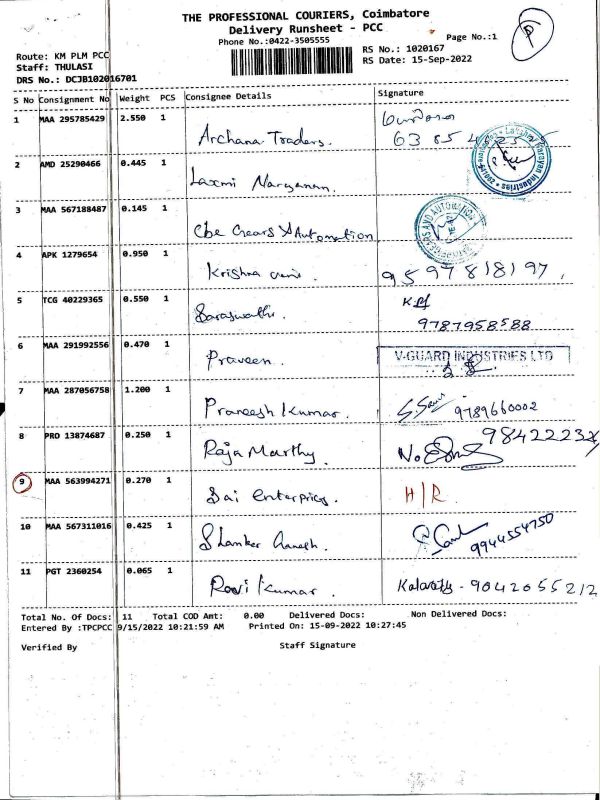 THE PROFESSIONAL COURIERS, Coimbatore
Delivery Runsheet - PCC
Phone No.:0422-3505555
Page No.:1
Route: KM PLM PCC
RS No.: 1020167
Staff: THULASI
RS Date: 15-Sep-2022
DRS No.: DCJB102016701
S No Consignment No Weight PCS Consignee Details Signature
1 MAA 295785429 2.550 1 Archana Traders.
2 AMD 25290466 0.445 1 Laxmi Narayanan.
3 MAA 567188487 0.145 1 Cbe Gears & Automation
4 APK 1279654 0.950 1 Krishna 9597818197.
5 TCG 40229365 0.550 1 Saraswathi. 9787958588
6 MAA 291992556 0.470 1 Praveen. V-GUARD INDUSTRIES LTD
7 MAA 287056758 1.200 1 Praneesh Kumar. 9789660002
8 PRD 13874687 0.250 1 Raja Marthy.
9 MAA 563994271 0.270 1 Sai Enterprices. H/R
10 MAA 567311016 0.425 1 Shanker Ganesh. 9944554750
11 PGT 2360254 0.065 1 Ravi Kumar. 9042055212
Total No. Of Docs: 11 Total COD Amt: 0.00 Delivered Docs: Non Delivered Docs:
Entered By :TPCPCC 9/15/2022 10:21:59 AM Printed On: 15-09-2022 10:27:45
Verified By Staff Signature